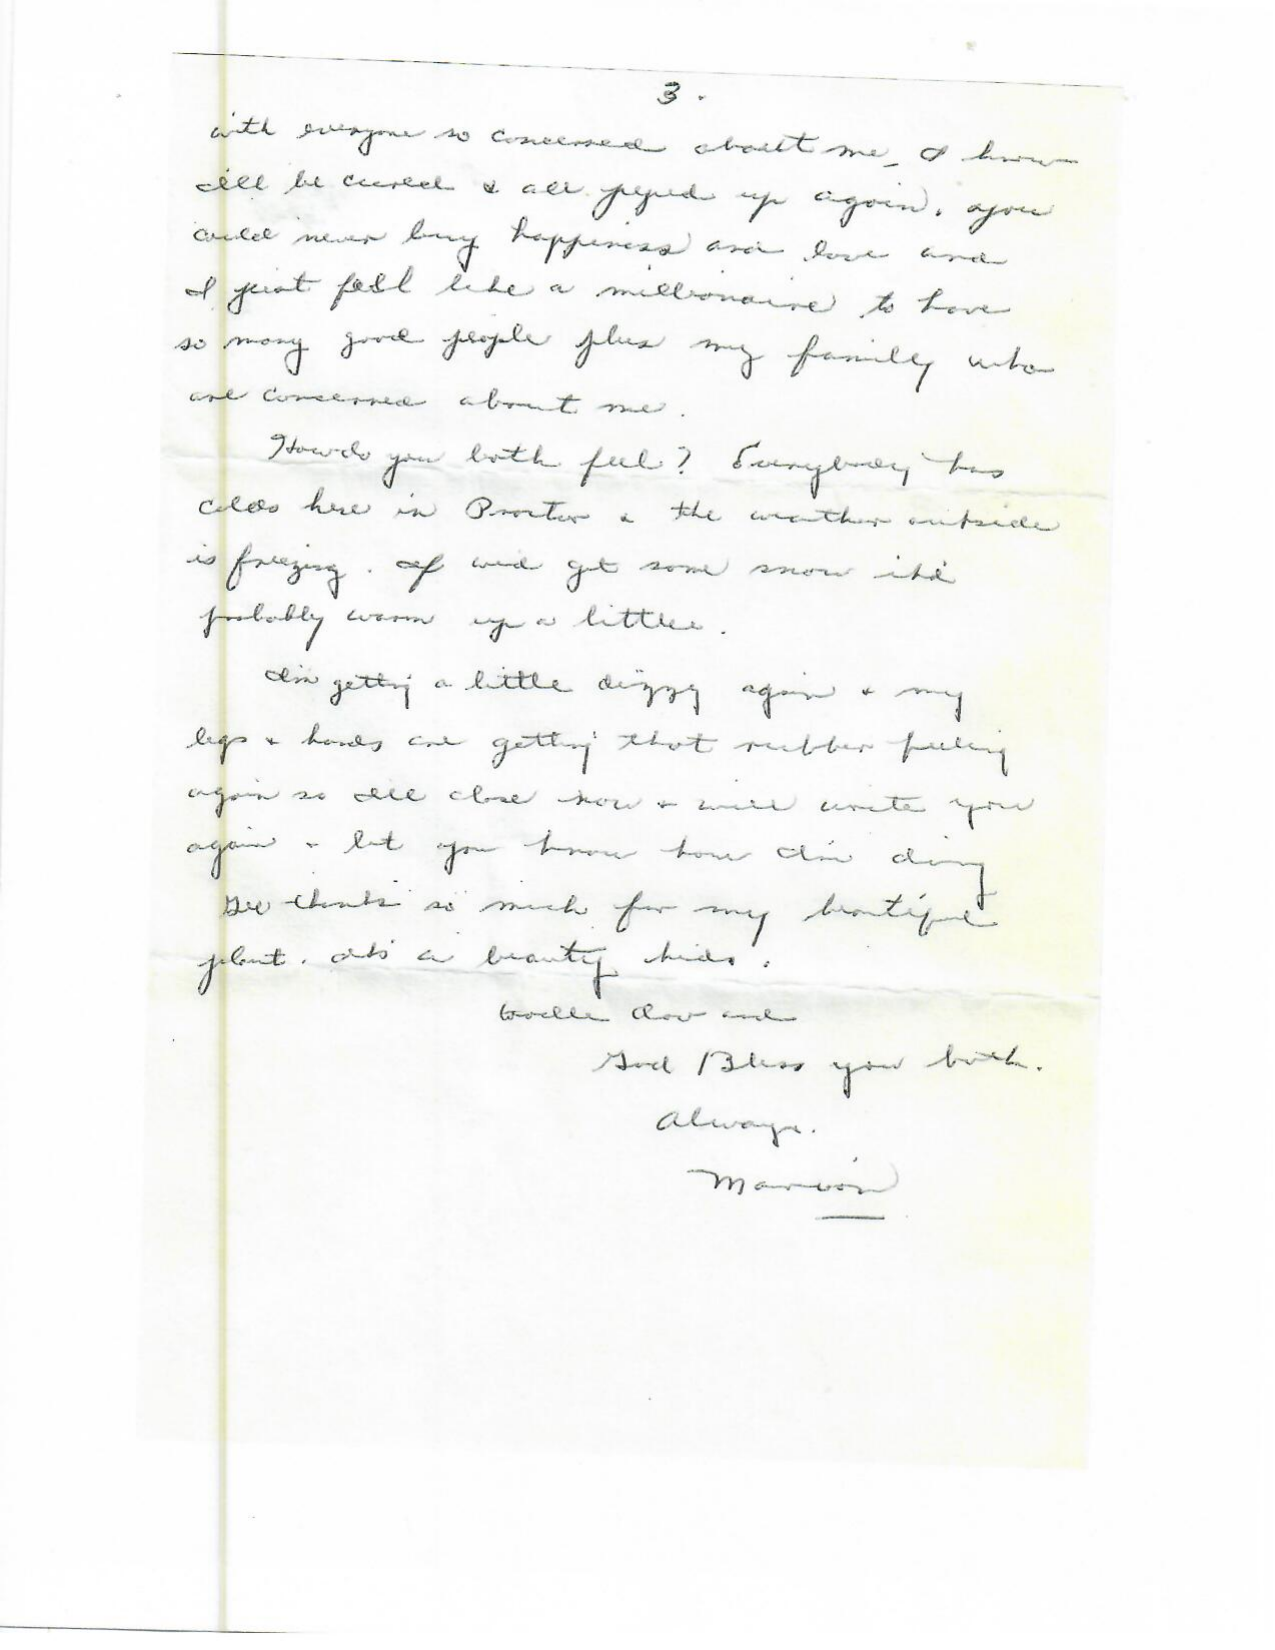 3.
with everyone so concerned about me, I know
I'll be cured & all pepped up again. You
could never buy happiness and love and
I just feel like a millionaire to have
so many good people plus my family who
are concerned about me.
How do you both feel? Everybody has
colds here in Proctor & the weather outside
is freezing. If we'd get some snow it'd
probably warm up a little.
I'm getting a little dizzy again & my
legs & hands are getting that rubber feeling
again so I'll close now & will write you
again & let you know how I'm doing
Gee thanks so much for my beautiful
plant. It's a beauty kids.
and
God Bless you both.
Always.
Marion